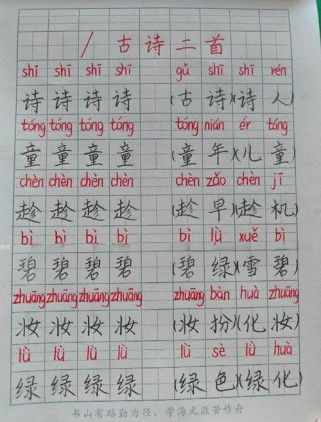 1 古诗二首
shī shī shī shī gǔ shī shī rén
诗 诗 诗 诗 (古 诗)(诗 人)
tóng tóng tóng tóng tóng nián ér tóng
童 童 童 童 (童 年)(儿 童)
chèn chèn chèn chèn chèn zǎo chèn jī
趁 趁 趁 趁 (趁 早)(趁 机)
bì bì bì bì bì lǜ xuě bì
碧 碧 碧 碧 (碧 绿)(雪 碧)
zhuāng zhuāng zhuāng zhuāng zhuāng bàn huà zhuāng
妆 妆 妆 妆 (妆 扮)(化 妆)
lǜ lǜ lǜ lǜ lǜ sè lǜ huà
绿 绿 绿 绿 (绿 色)(绿 化)
书山有路勤为径，学海无涯苦作舟